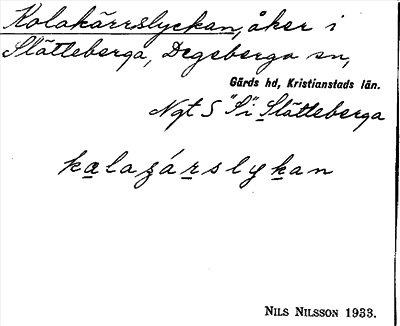 Kolakärrslyckan, åker i
Slätteberga, Degeberga sn,
Gärds hd, Kristianstads län.
Ngt S "S" i Slätteberga
kalagárslykan
NILS NILSSON 1933.